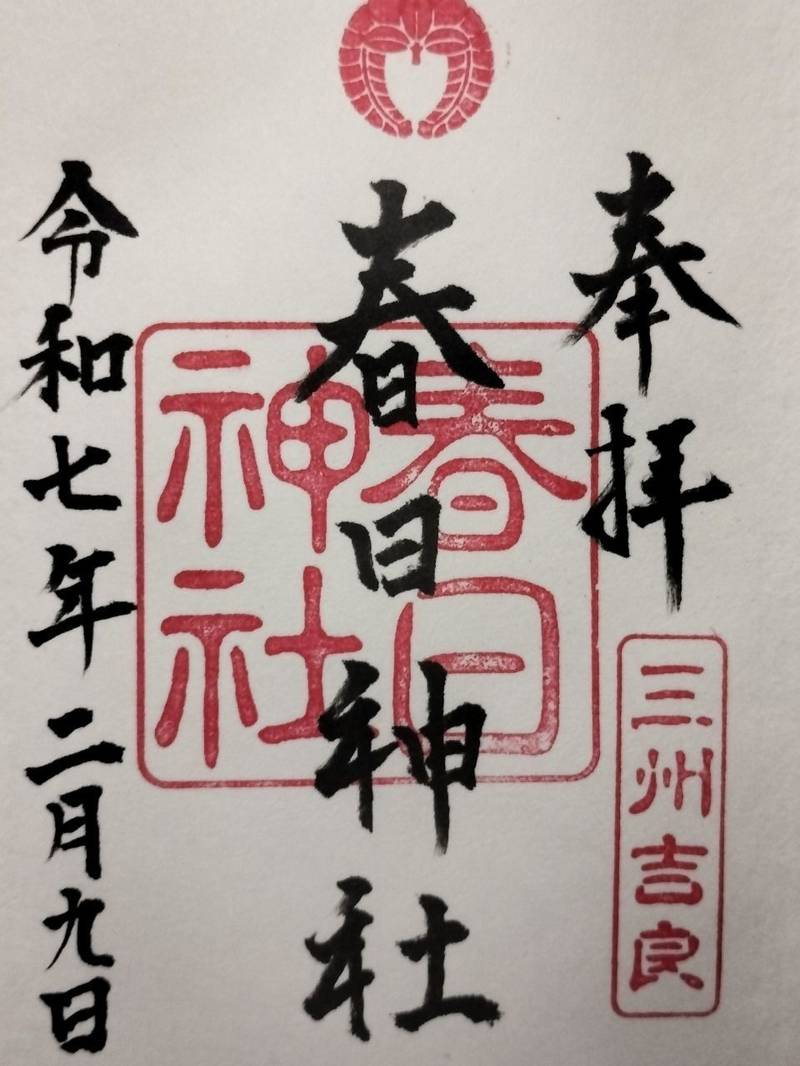 奉拝
三州吉良
春日神社
春日神社
令和七年二月九日